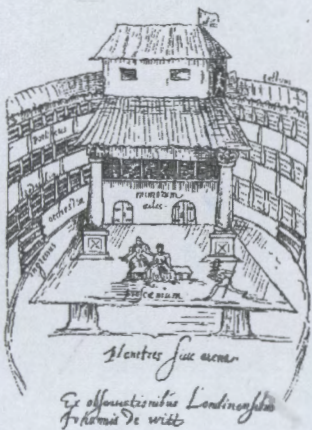 tectum
porticus
sedilia
orchestra
ingressus
mimorum
ædes
proscænium
planities sive arena
Ex observationibus Londinensibus
Johannis de witt